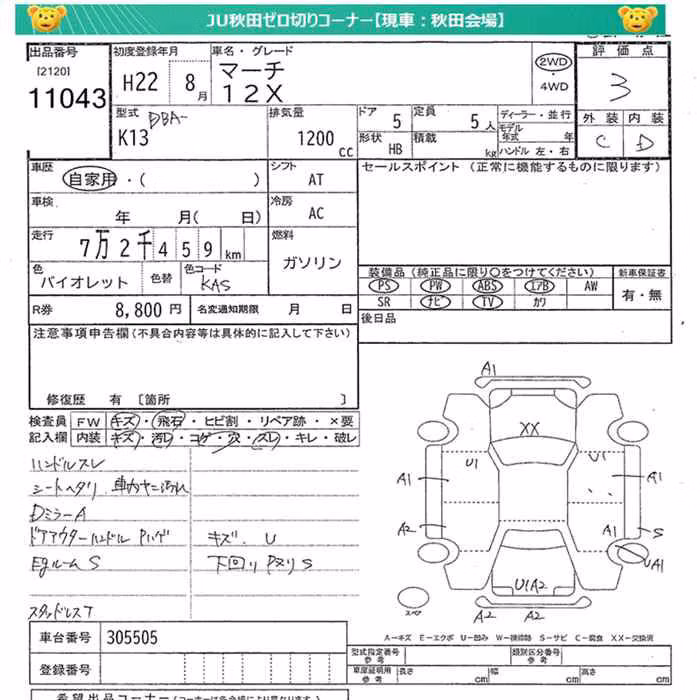 JU秋田ゼロ切りコーナー【現車：秋田会場】
出品番号
[2120]
11043
初度登録年月
H22 8月
車名・グレード
マーチ
12X
2WD
・
4WD
評価点
3
外装 内装
C D
型式
DBA-
K13
排気量
1200 cc
ドア 5
定員 5人
形状 HB
積載 kg
ディーラー・並行
モデル年式 年
ハンドル 左・右
車歴
自家用・( )
シフト
AT
セールスポイント (正常に機能するものに限ります)
車検
年 月( 日)
冷房
AC
走行
7万2千459km
燃料
ガソリン
色
バイオレット
色替
色コード
KAS
装備品(純正品に限り○をつけてください)
PS PW ABS エアB AW
SR ナビ TV カワ
新車保証書
有・無
R券 8,800円
名変通知期限 月 日
後日品
注意事項申告欄(不具合内容等は具体的に記入して下さい)
修復歴 有 [箇所 ]
検査員
記入欄
FW キズ・飛石・ヒビ割・リペア跡・×要
内装 キズ・汚レ・コゲ・穴・スレ・キレ・破レ
ハンドルスレ
シートヘタリ 車内ヤニ汚れ
DミラーA
ドアアウターハンドル Pハゲ
EgルームS
スタッドレスT
キズ.U
下回りPヌリS
A1
XX
U1 U1
A1 A1
A2 A1 S
UA1
U1A2
スペア
A2 A2
A－キズ E－エクボ U－凹み W－補修跡 S－サビ C－腐食 XX－交換済
車台番号 305505
登録番号
型式指定番号
参考
類別区分番号
参考
車庫証明用
参考
長さ cm 幅 cm 高さ cm